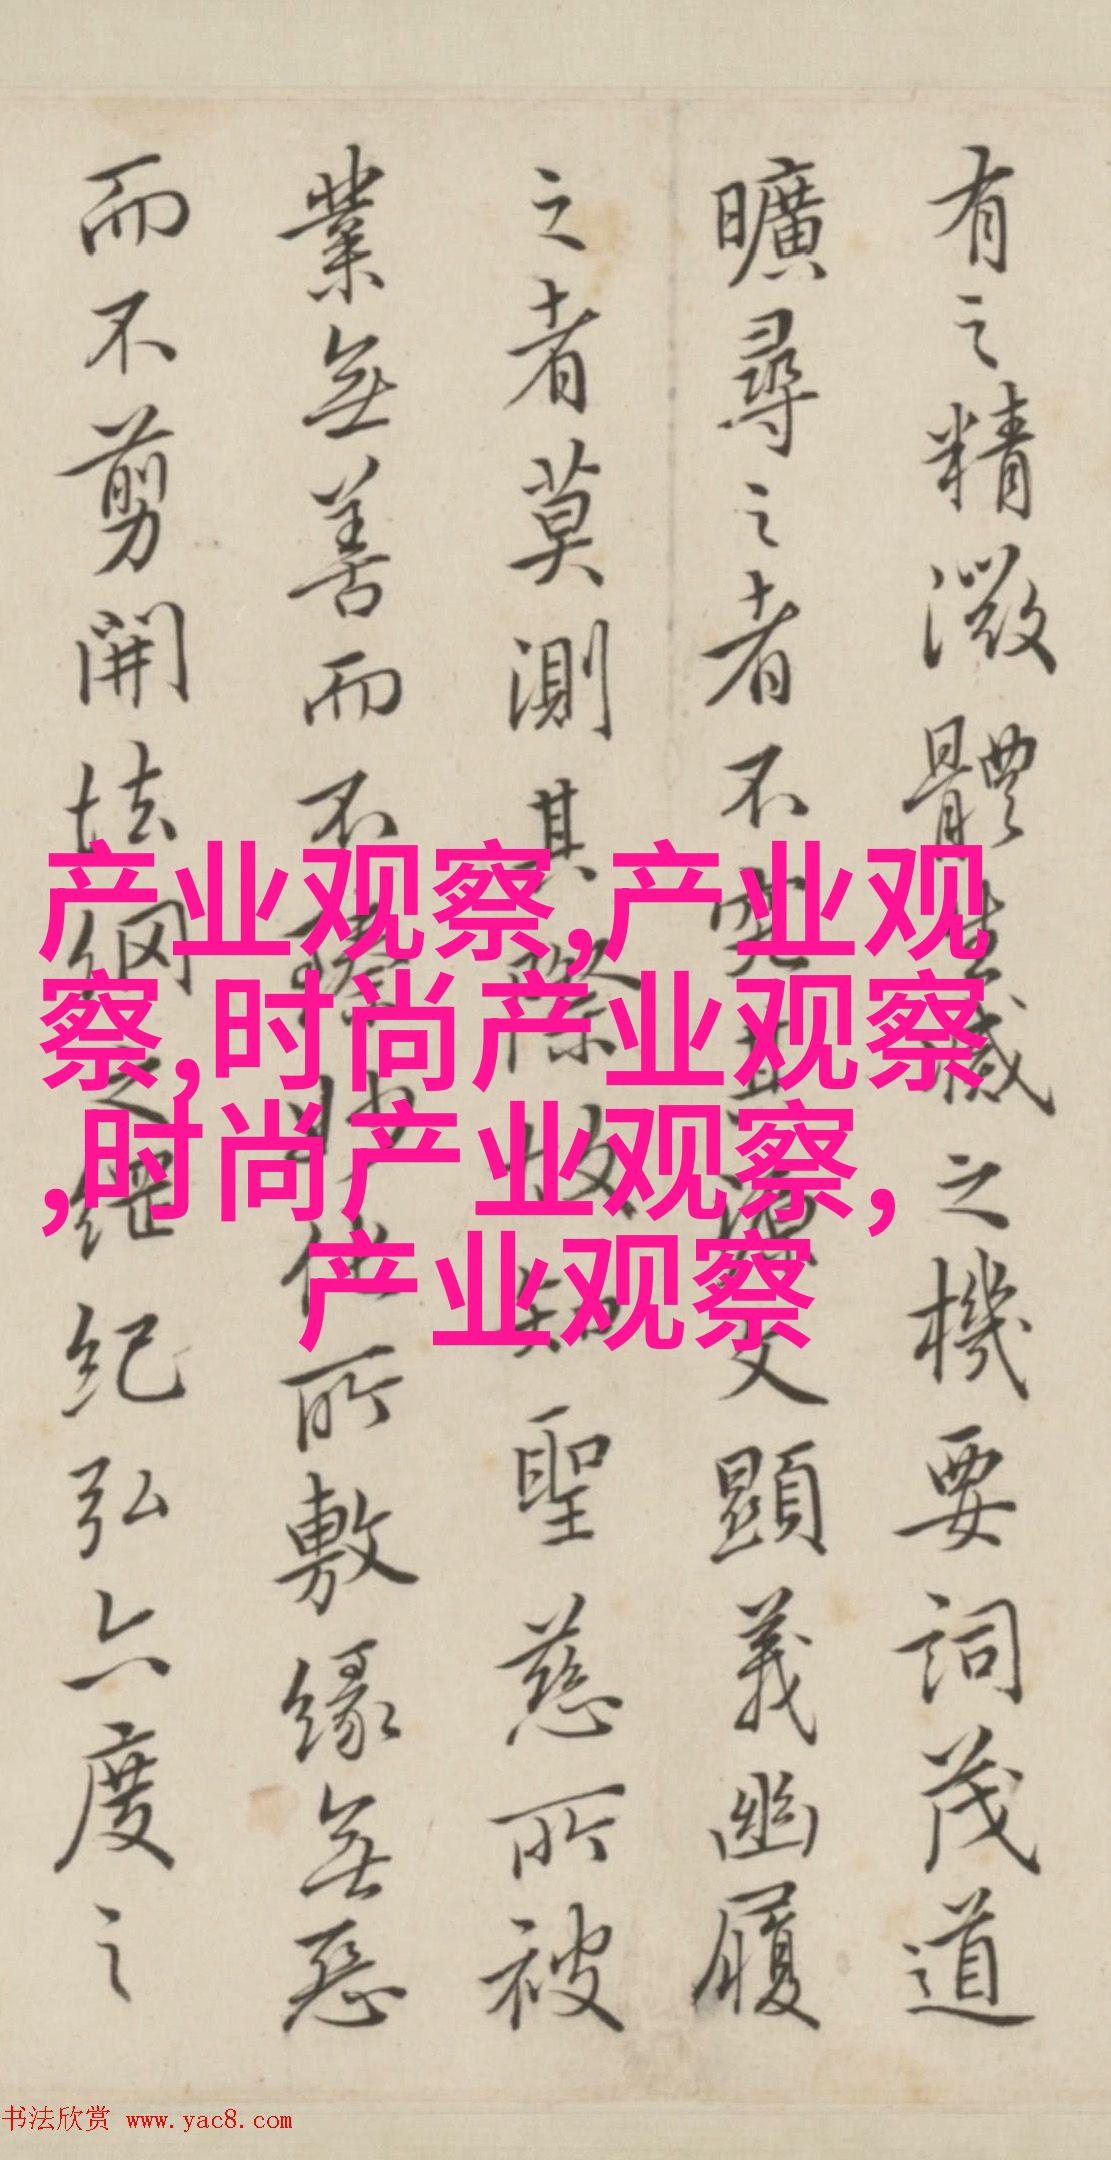 有之精微體生滅之機要詞茂道
曠尋之者不究其源文顯義幽履
之者莫測其際故知聖慈所被
業無善而不臻妙化所敷緣無惡
而不剪開法網之綱紀弘六度之
产业观察,产业观
察,时尚产业观察
,时尚产业观察,
产业观察
书法欣赏 www.yac8.com